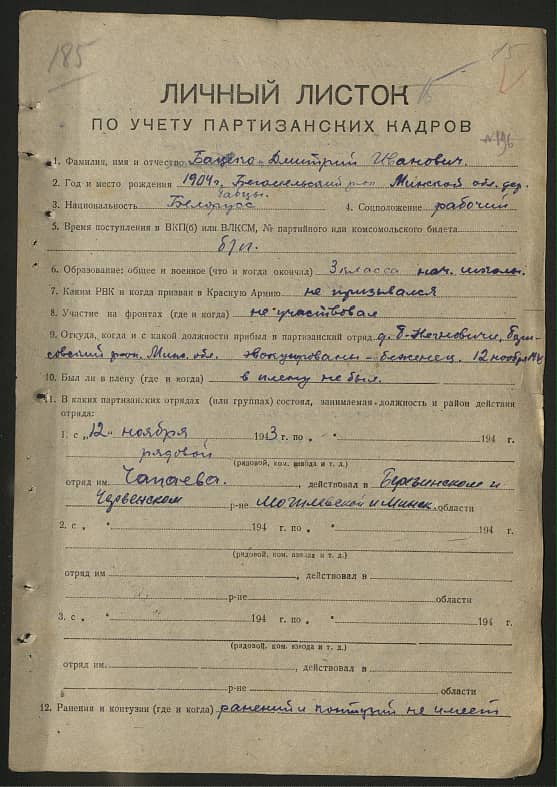 185
15
ЛИЧНЫЙ ЛИСТОК
ПО УЧЕТУ ПАРТИЗАНСКИХ КАДРОВ
№196
1. Фамилия, имя и отчество Дмитрий Иванович.
2. Год и место рождения 1904г. Бегомльский р-он Минской обл. дер.
3. Национальность Белорусс 4. Соцположение рабочий
5. Время поступления в ВКП(б) или ВЛКСМ, № партийного или комсомольского билета
б/п.
6. Образование: общее и военное (что и когда окончил) 3 класса нач. школы.
7. Каким РВК и когда призван в Красную Армию не призывался
8. Участие на фронтах (где и когда) не участвовал
9. Откуда, когда и с какой должности прибыл в партизанский отряд д. Бори-
совский р-он. Минс. обл. беженец. 12 ноября
10. Был ли в плену (где и когда) в плену не был.
11. В каких партизанских отрядах (или группах) состоял, занимаемая должность и район действия
отряда:
1. с „12“ ноября 1943 г. по „ “ 194 г.
рядовой
(рядовой, ком. взвода и т. д.)
отряд им Чапаева. , действовал в Березинском и
Червенском р-не Могилевской и Минск. области
2. с „ “ 194 г. по „ “ 194 г.
(рядовой, ком. взвода и т. д.)
отряд им , действовал в
р-не области
3. с „ “ 194 г. по „ “ 194 г.
(рядовой, ком. взвода и т. д.)
отряд им. , действовал в
р-не области
12. Ранения и контузии (где и когда) ранений и контузий не имеет